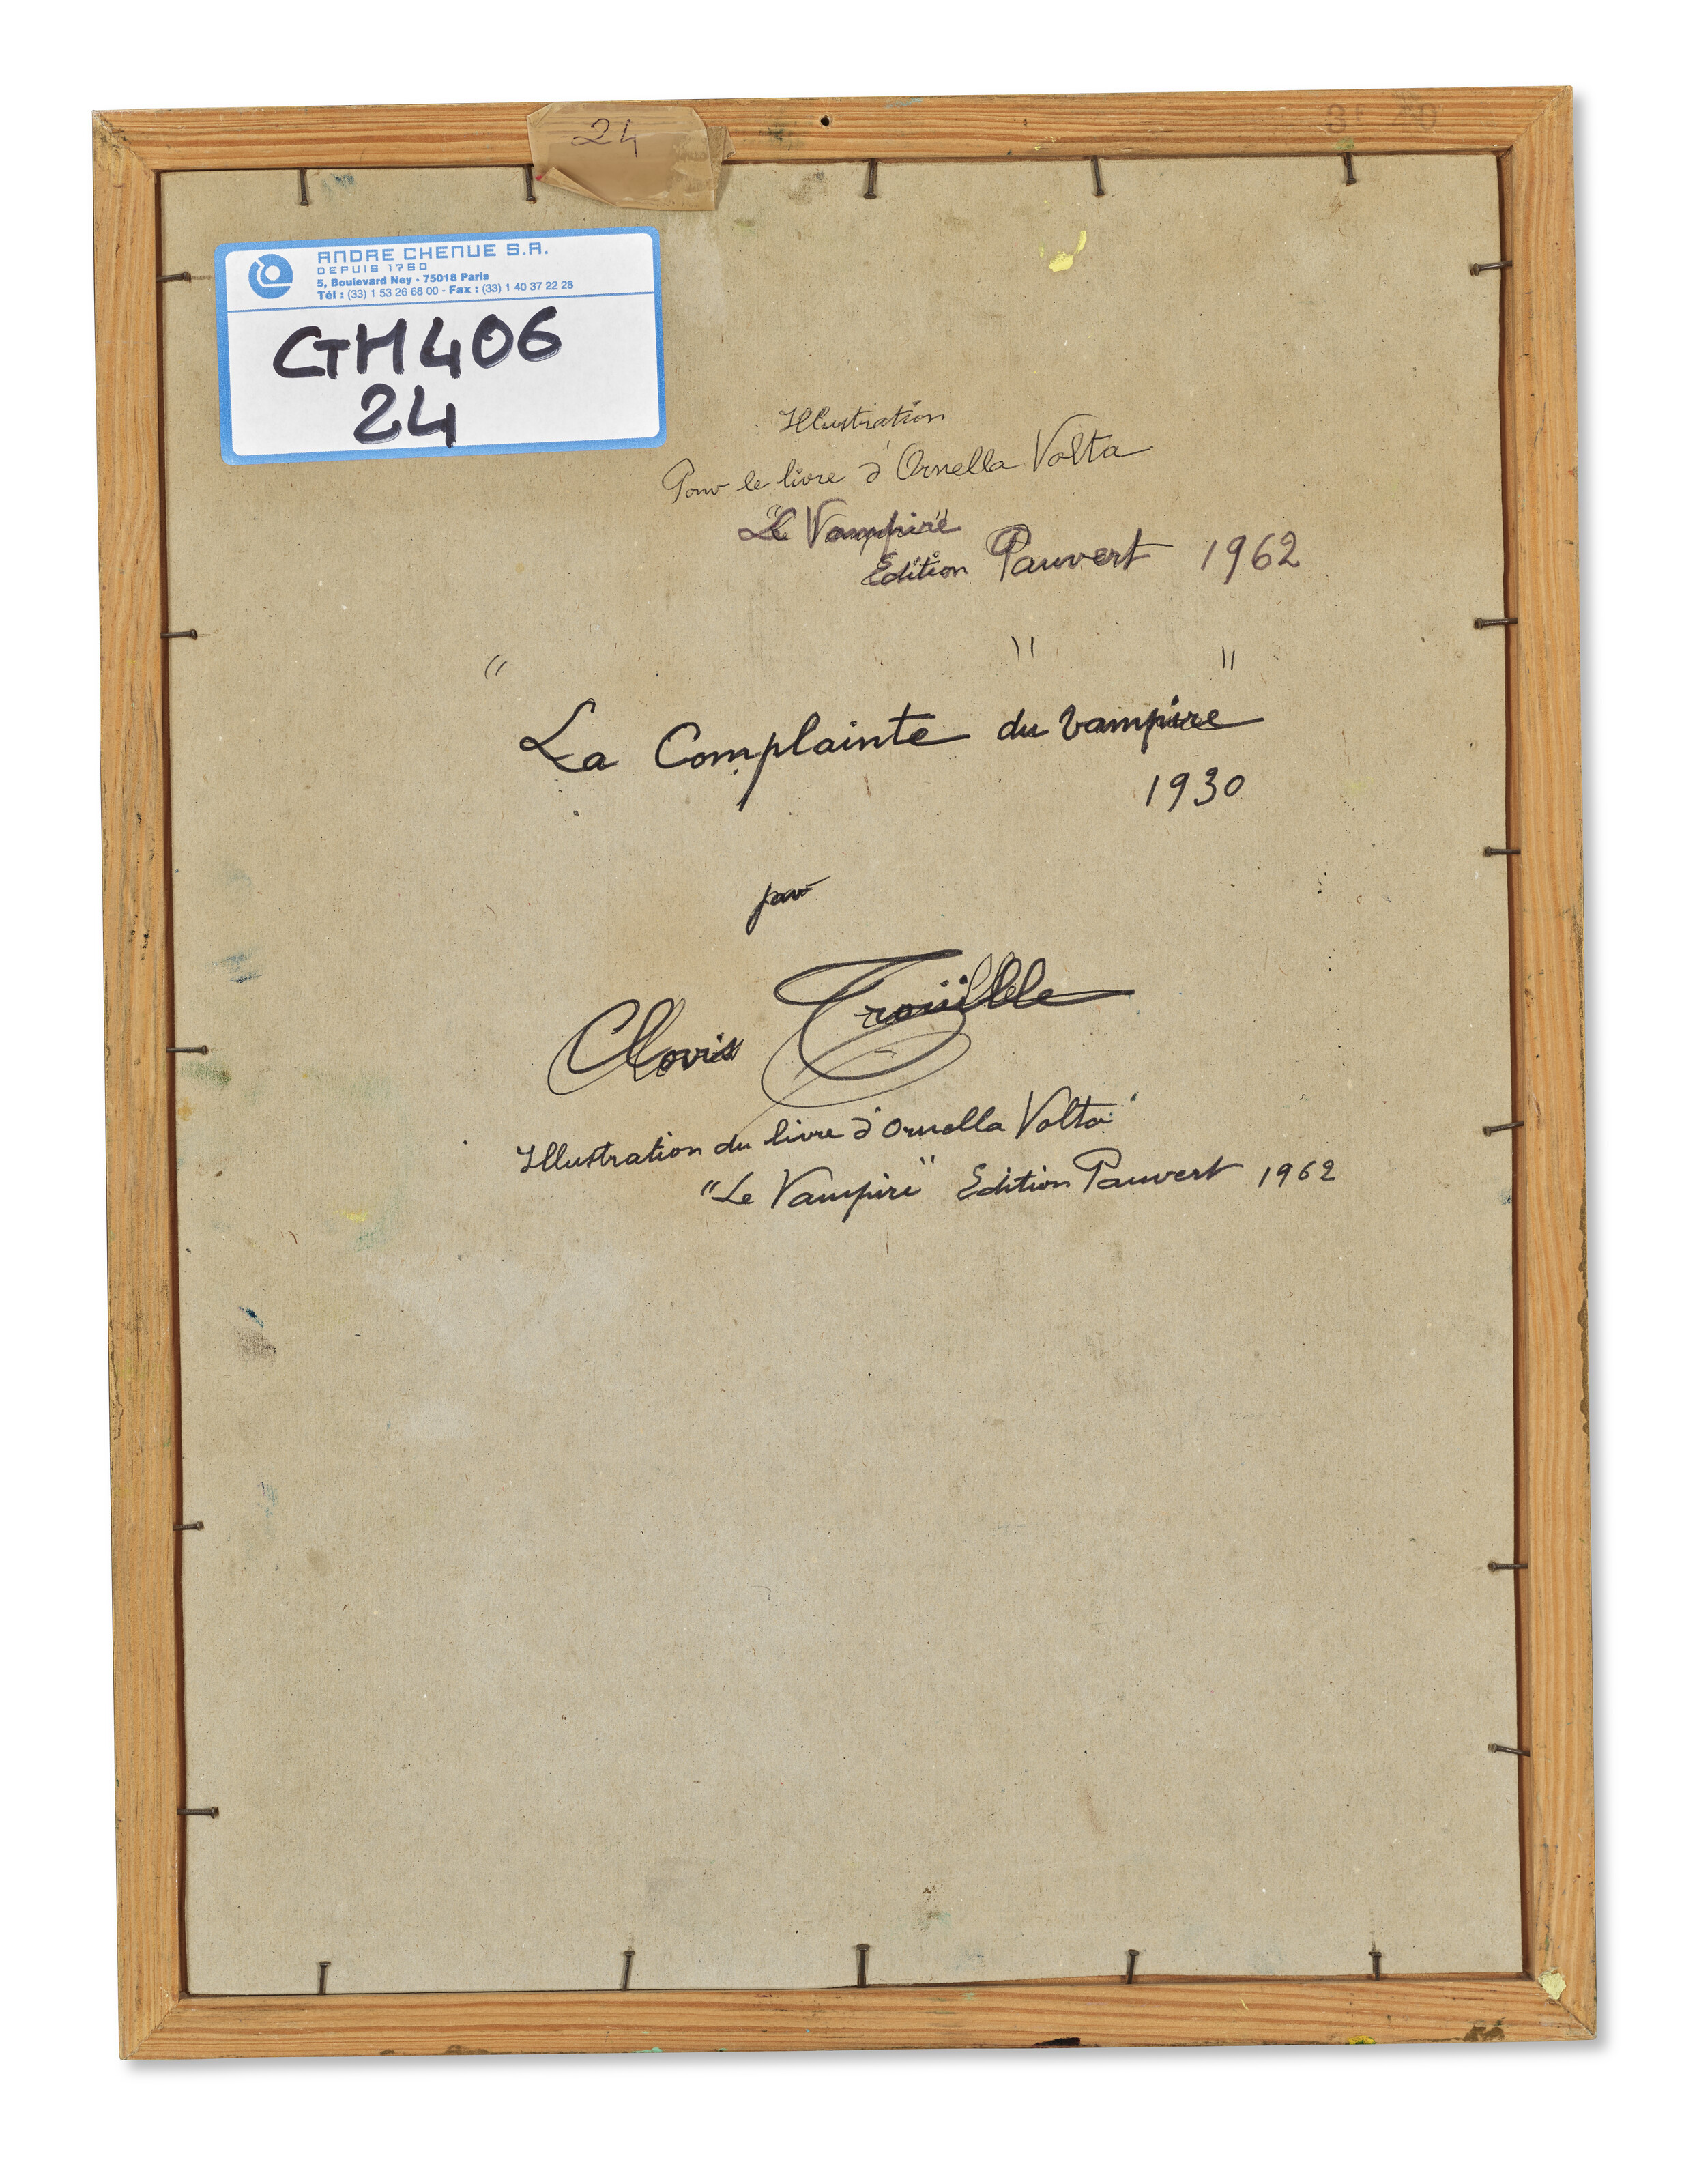 24
ANDRE CHENUE S.A.
DEPUIS 1760
5, Boulevard Ney - 75018 Paris
Tél : (33) 1 53 26 68 00 - Fax : (33) 1 40 37 22 28
GH406
24
Illustration
Pour le livre d'Ornella Volta
"Le Vampire"
Edition Pauvert 1962
"La Complainte du vampire"
1930
par
Clovis Trouille
Illustration du livre d'Ornella Volta
"Le Vampire" Edition Pauvert 1962